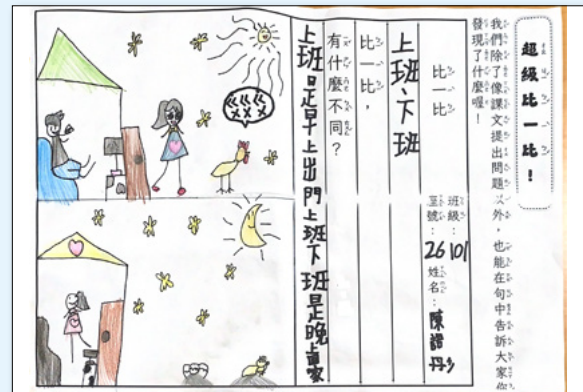 超級比一比！
我們除了像課文提出問題以外，也能在句中告訴大家你
發現了什麼喔！
比一比
班級：101
座號：26 姓名：陳
上班、下班
比一比，
有什麼不同？
上班是早上出門上班下班是晚上回家
ㄍㄍㄍ
ㄨㄨㄨ